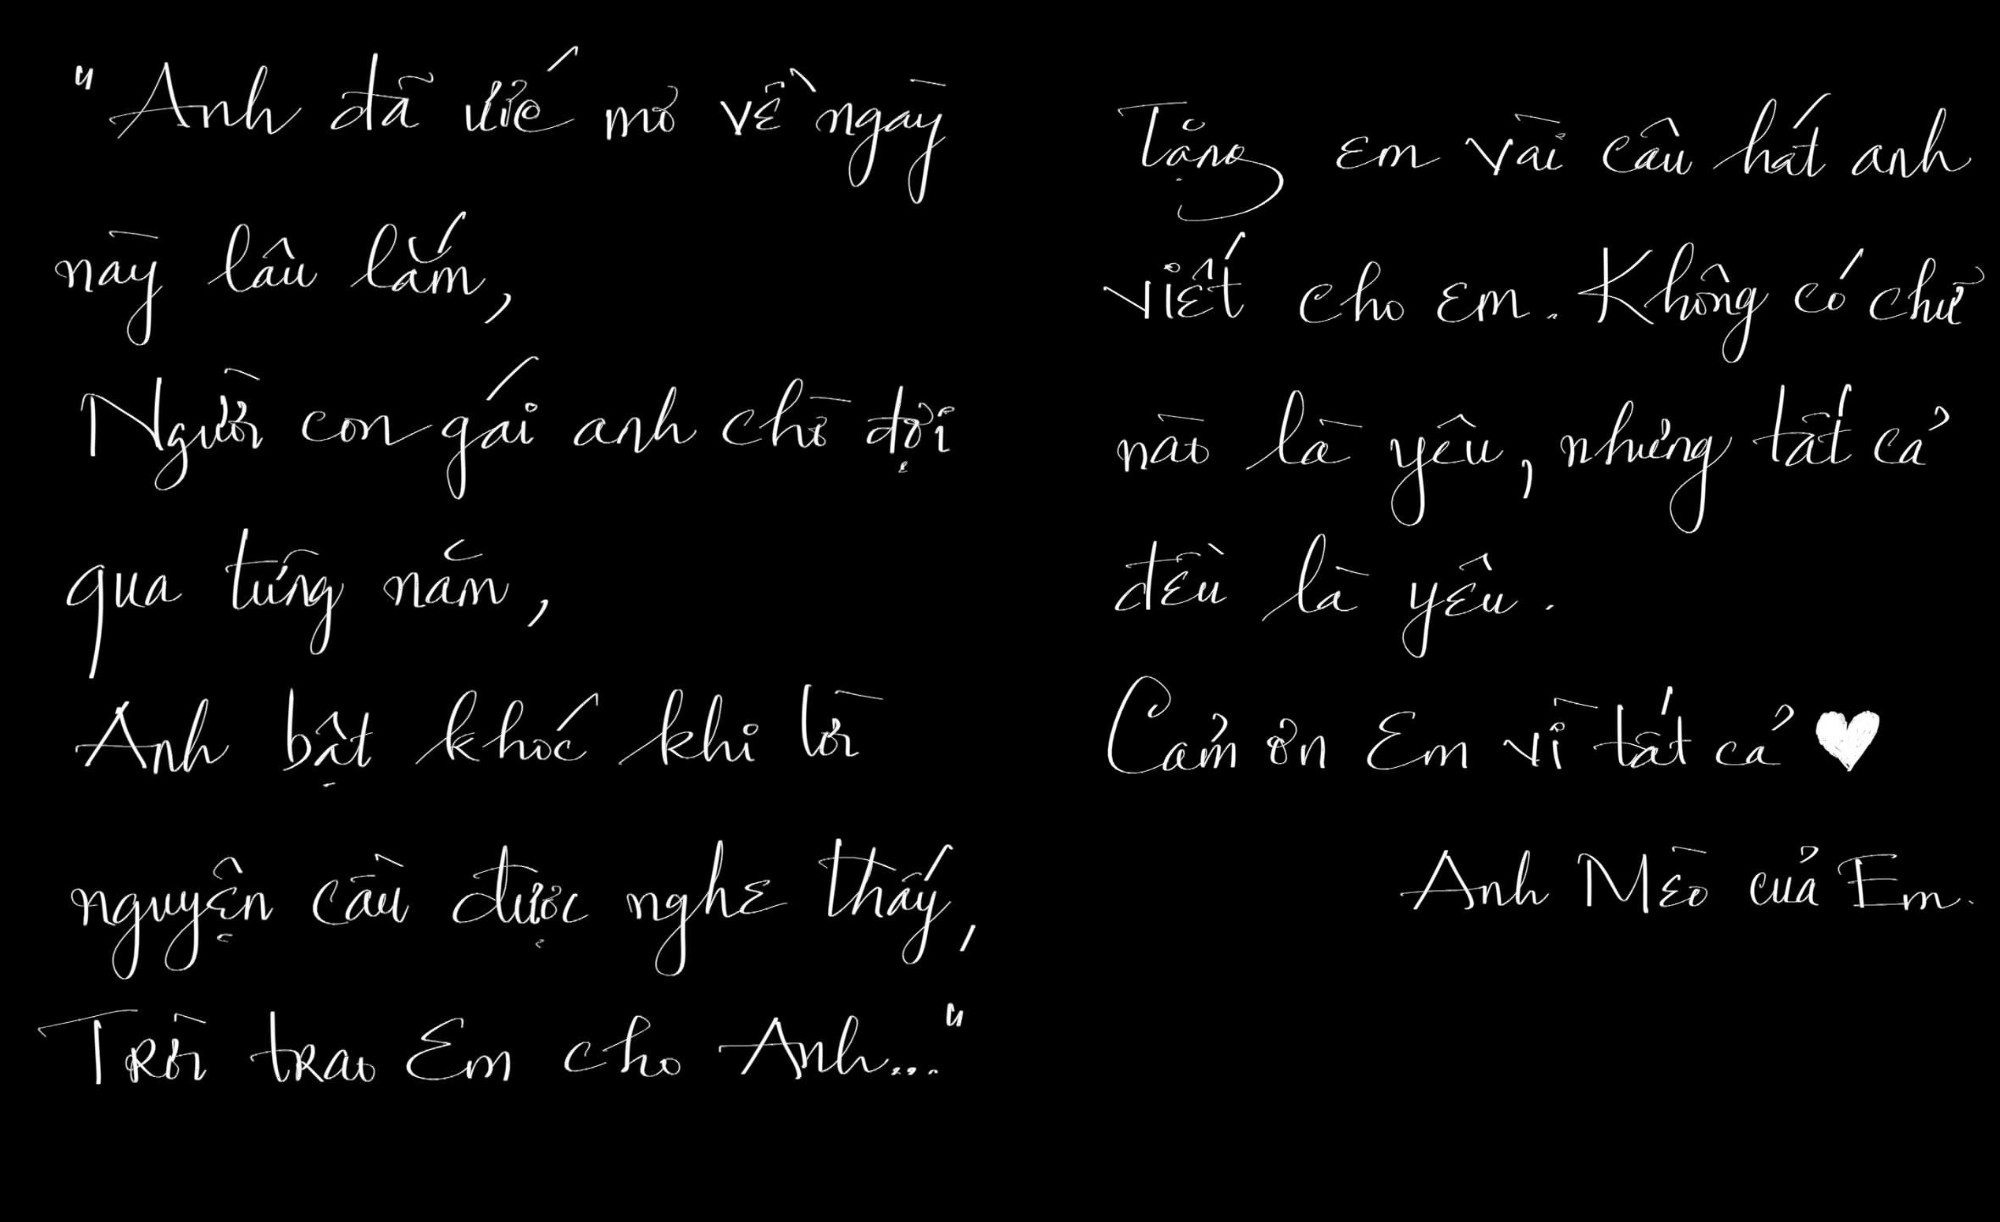 "Anh đã ước mơ về ngày
này lâu lắm,
Người con gái anh chờ đợi
qua từng năm,
Anh bật khóc khi lời
nguyện cầu được nghe thấy,
Trời trao Em cho Anh..."
Tặng em vài câu hát anh
viết cho em. Không có chữ
nào là yêu, nhưng tất cả
đều là yêu.
Cảm ơn Em vì tất cả ♥
Anh Mèo của Em.